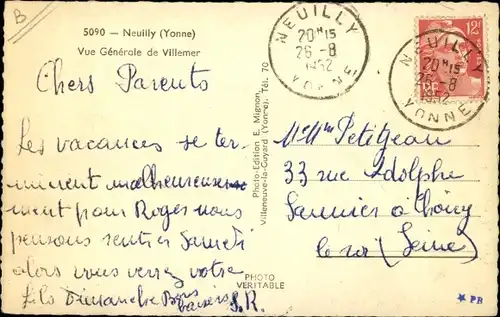 B
5090 — Neuilly (Yonne)
Vue Générale de Villemer
Chers Parents
Les vacances se ter-
minent malheureuse
ment pour Roger nous
pensons rentrer Samedi
alors vous verrez votre
fils Dimanche Bons
baisers S.R.
PHOTO
VERITABLE
Photo-Edition E. Mignon
Villeneuve-la-Guyard (Yonne). Tél. 70
NEUILLY
20H15
26-8
1952
YONNE
12F
RF
NEUILLY
20H15
26-8
1952
YONNE
Mr Mme Petitjean
33 rue Adolphe
Saunier a Choisy
le roi (Seine)
PB